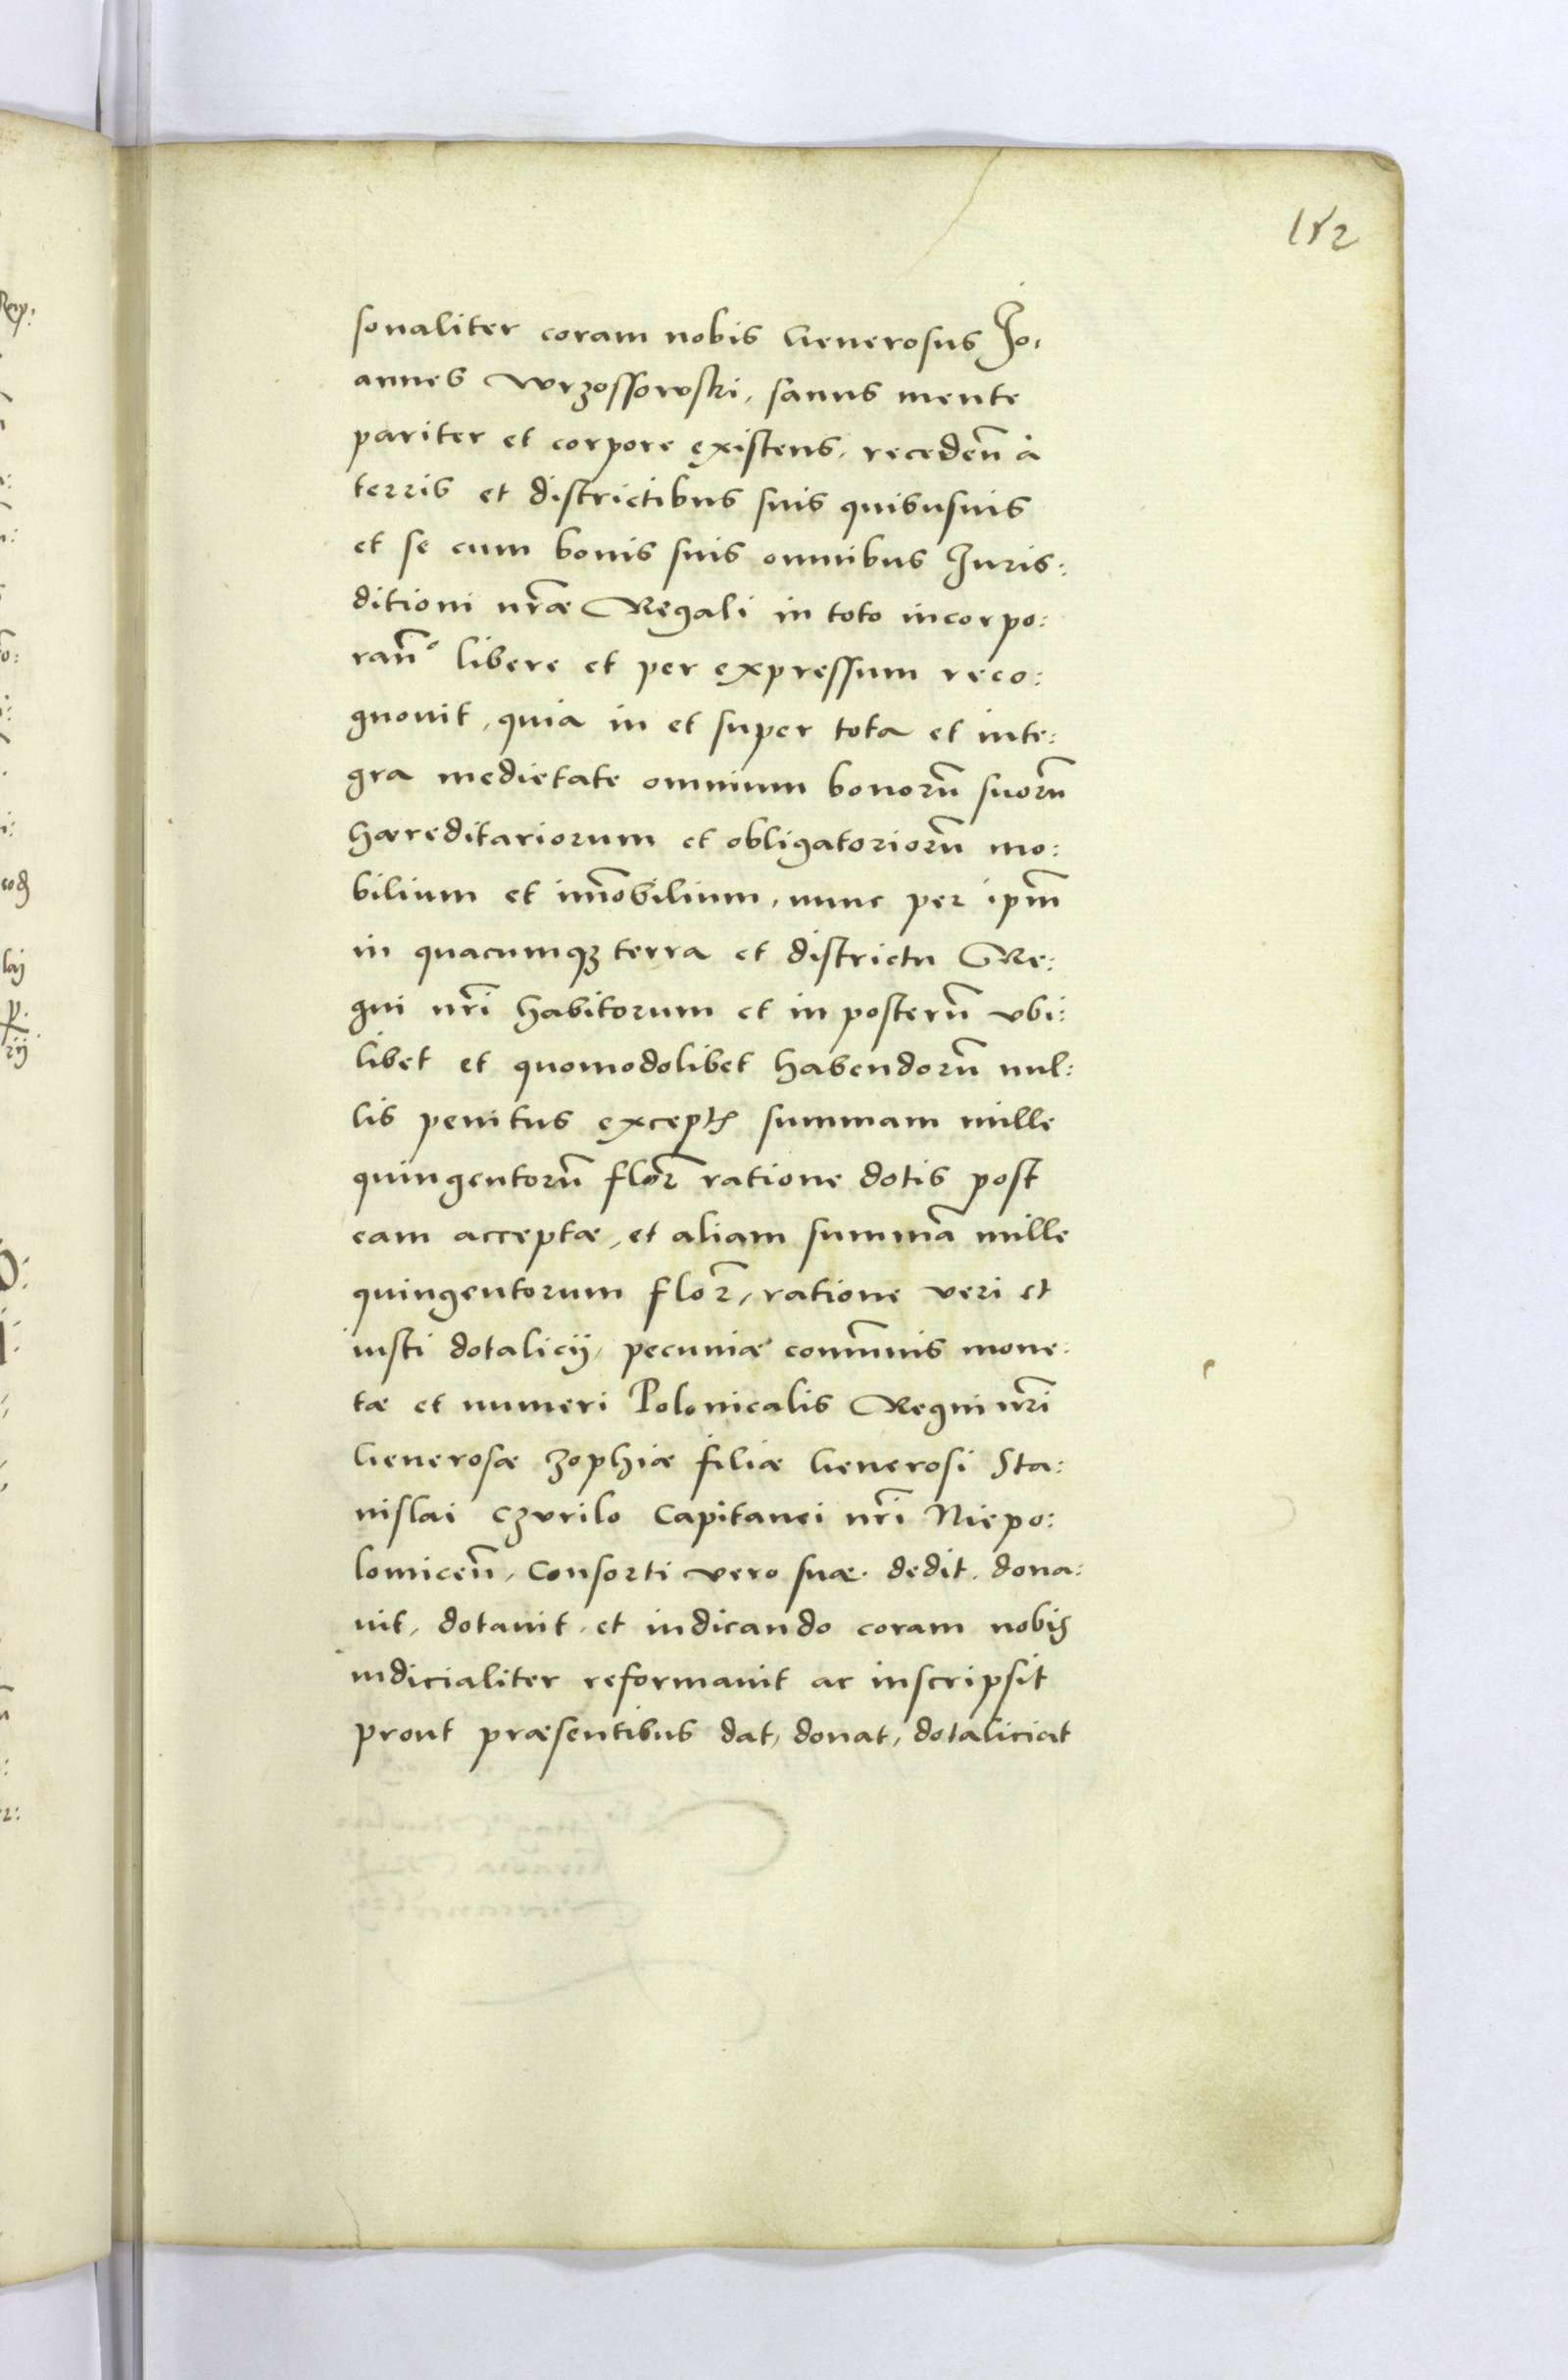 182
sonaliter coram nobis Generosus Jo,
annes Wrzossowski, sanus mente
pariter et corpore existens, receden̄ à
terris et districtibus suis quibusuis
et se cum bonis suis omnibus Juris:
ditioni nr̃æ Regali in toto incorpo:
ran̄° libere et per expressum reco:
gnouit, quia in et super tota et inte:
gra medietate omnium bonorū suorū
hæreditariorum et obligatoriorū mo:
bilium et im̄obilium, nunc per ipm̄
in quacumqȝ terra et districtu Re:
gni nr̃i habitorum et in posterū vbi:
libet et quomodolibet habendorū nul:
lis penitus exceptꝭ summam mille
quingentorū flor̃ ratione dotis post
eam acceptæ, et aliam summā mille
quingentorum flor̃, ratione veri et
iusti dotalicij, pecuniæ com̄unis mone:
tæ et numeri Polonicalis Regni nr̃i
Generosæ Zophiæ filiæ Generosi Sta:
nislai Czvrilo Capitanei nr̃i Niepo:
lomicen̄, Consorti vero suæ. dedit, dona:
uit, dotauit, et indicando coram nobis
iudicialiter reformauit ac inscripsit
prout præsentibus dat, donat, dotaliciat